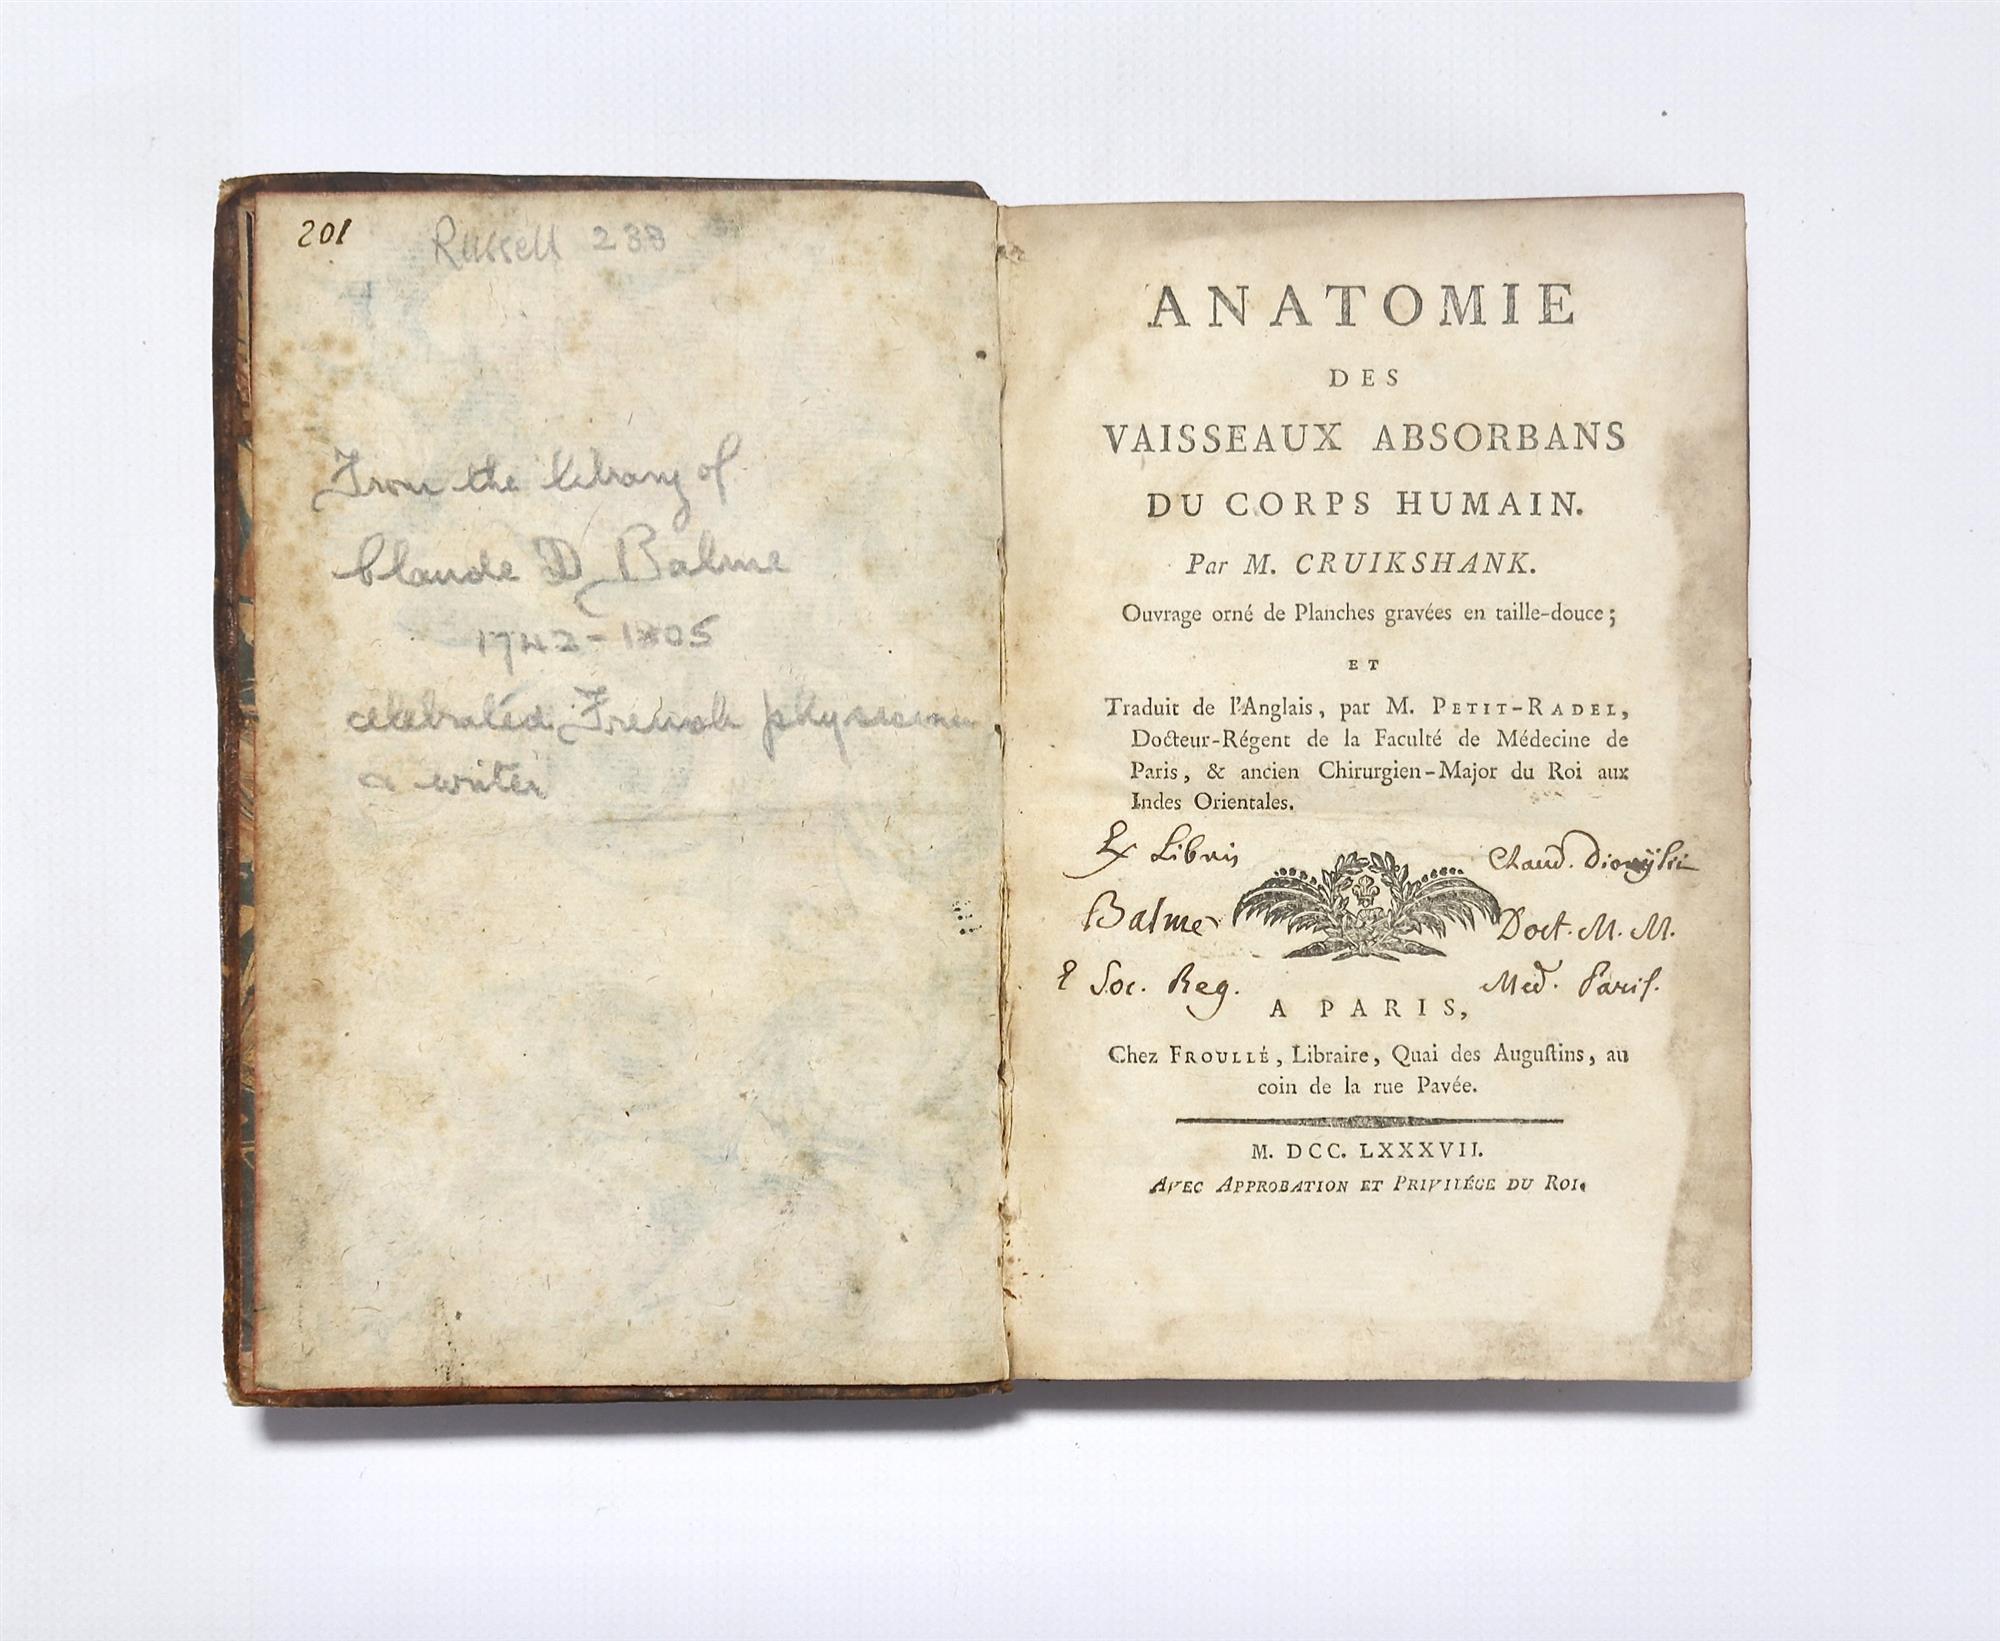 201
Russell 233
From the library of
Claude D Balme
1742-1805
celebrated French physician
a writer
ANATOMIE
DES
VAISSEAUX ABSORBANS
DU CORPS HUMAIN.
Par M. CRUIKSHANK.
Ouvrage orné de Planches gravées en taille-douce;
ET
Traduit de l'Anglais, par M. PETIT-RADEL,
Docteur-Régent de la Faculté de Médecine de
Paris, & ancien Chirurgien-Major du Roi aux
Indes Orientales.
Ex Libris Claud. Dionysii
Balme Doct. M. M.
è Soc. Reg. Med. Paris.
A PARIS,
Chez FROULLÉ, Libraire, Quai des Augustins, au
coin de la rue Pavée.
M. DCC. LXXXVII.
AVEC APPROBATION ET PRIVILÉGE DU ROI.